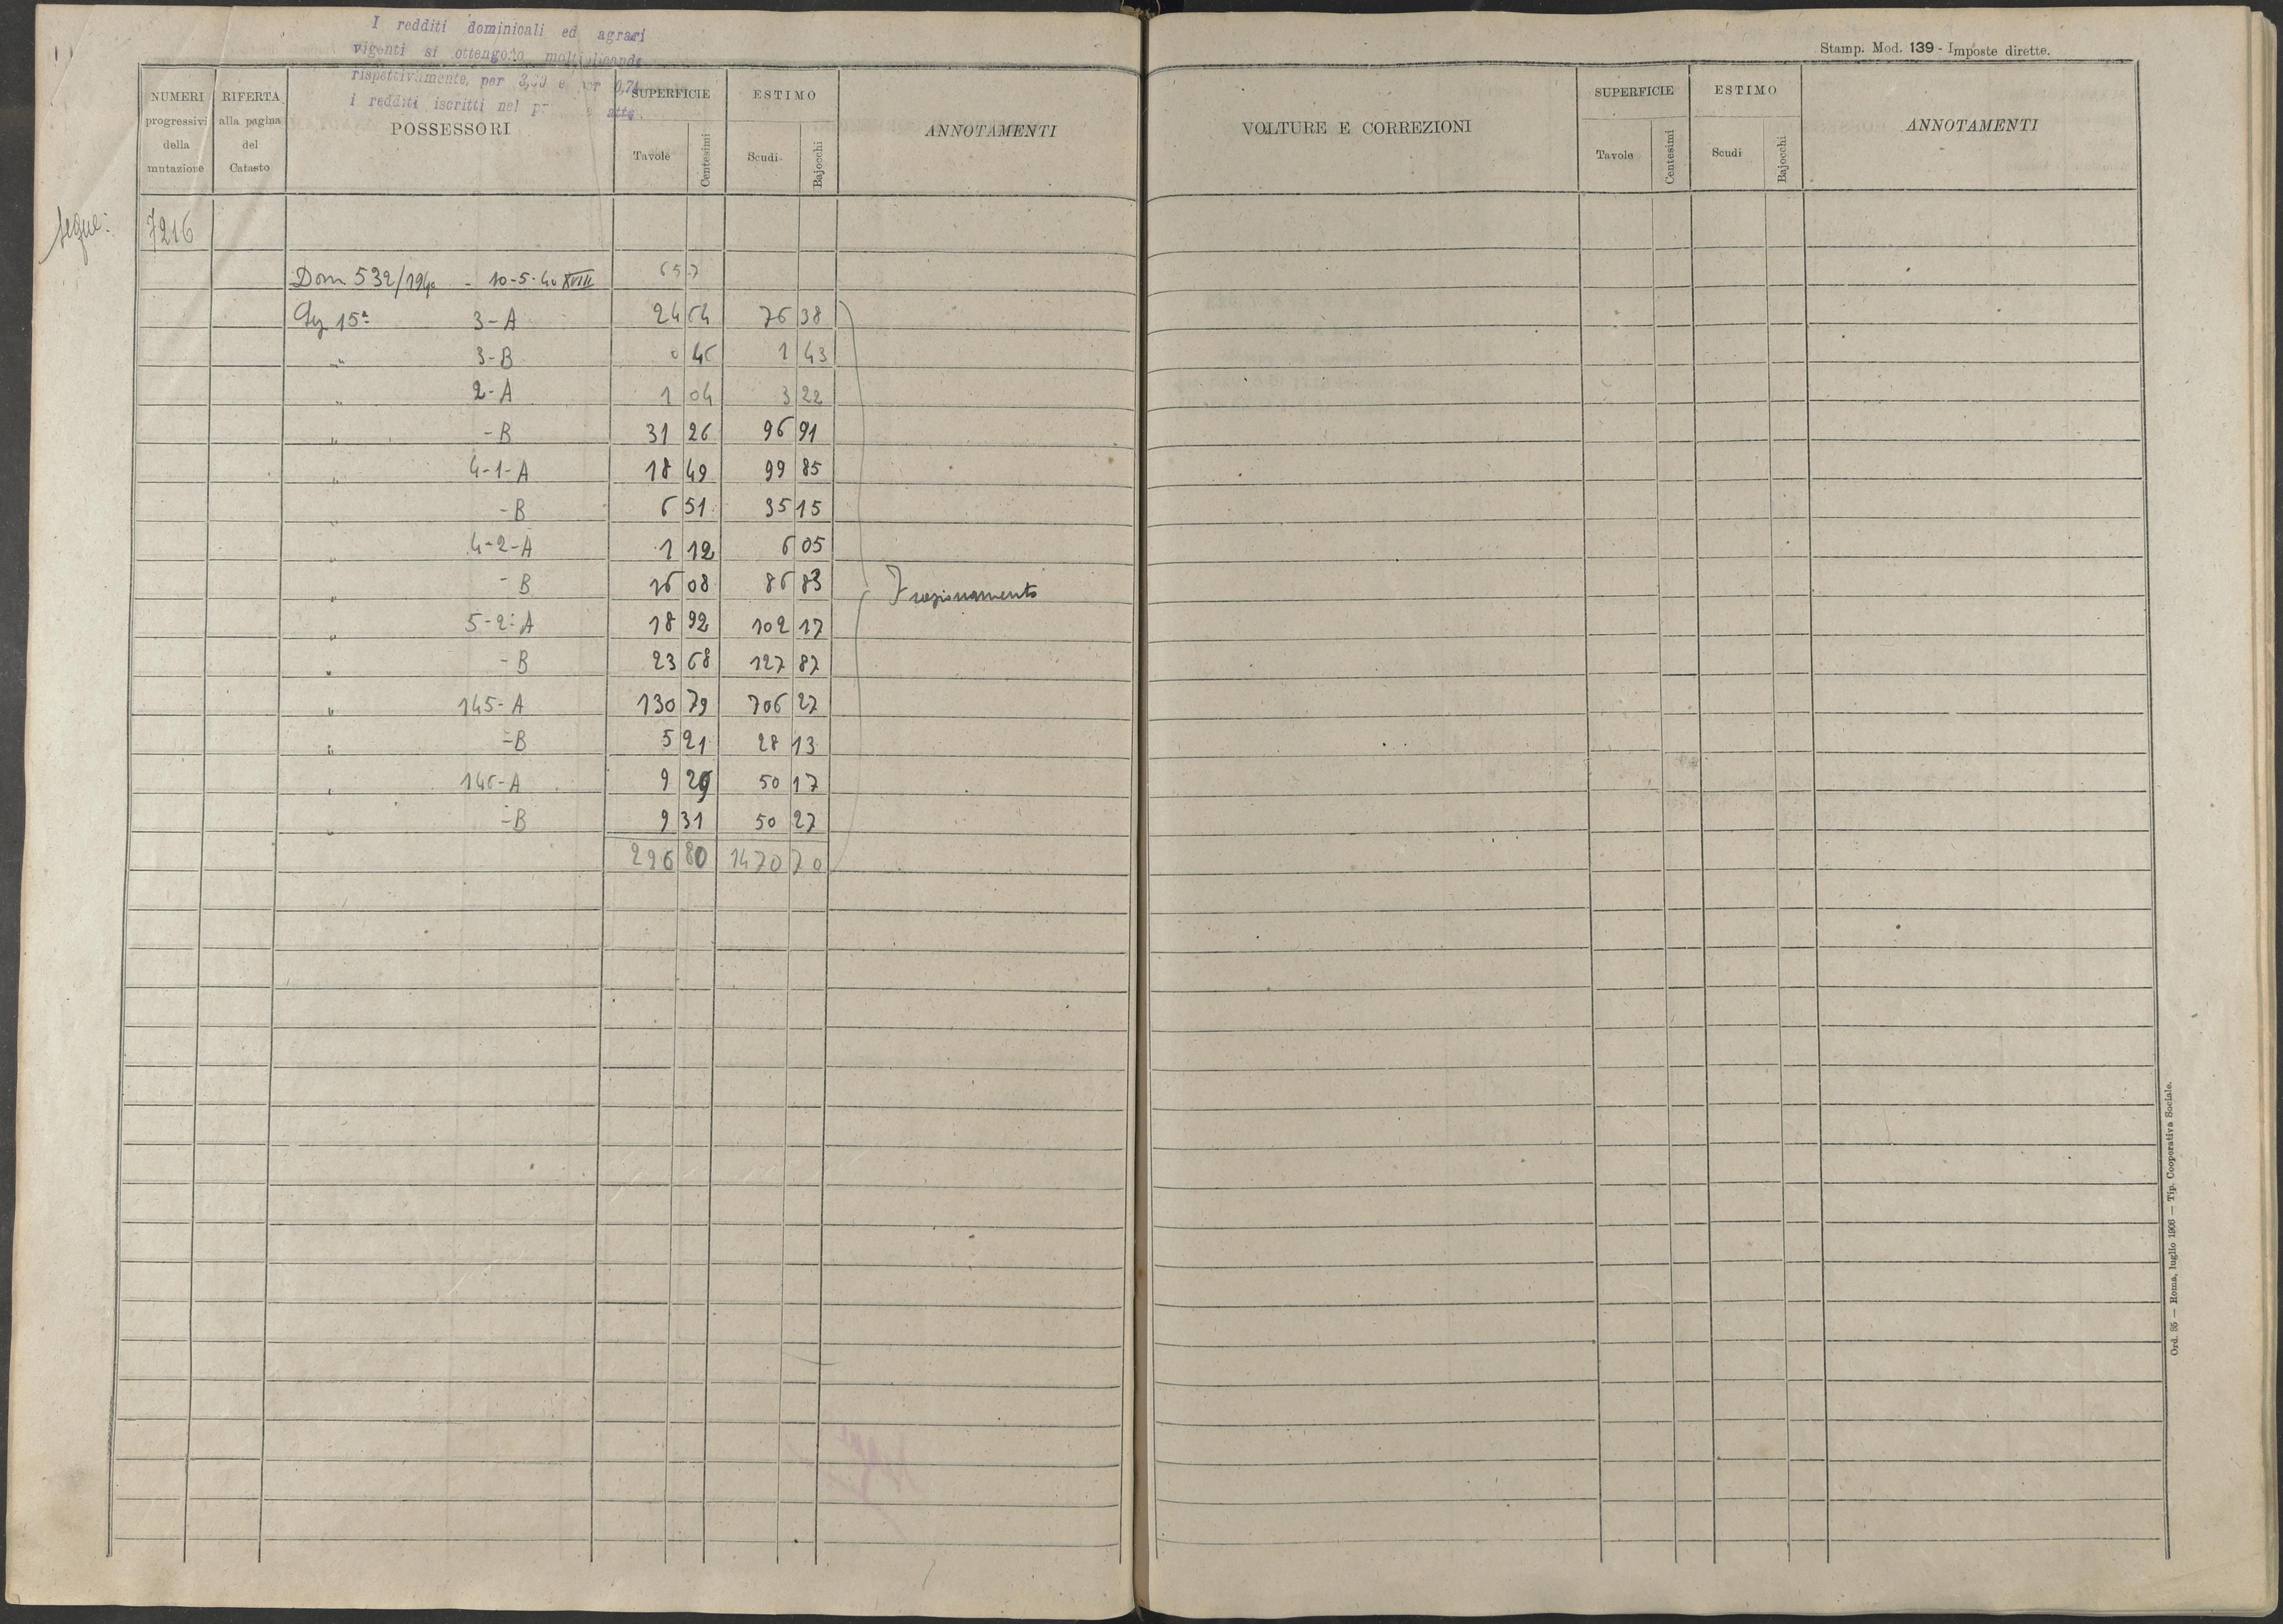 I redditi dominicali ed agrari
vigenti si ottengono moltiplicando
rispettivamente, per e per 0,74
i redditi iscritti nel atto.
Stamp. Mod. 139 - Imposte dirette.
NUMERI progressivi della mutazione RIFERTA alla pagina del Catasto POSSESSORI SUPERFICIE Tavole Centesimi ESTIMO Scudi Bajocchi ANNOTAMENTI
VOLTURE E CORREZIONI SUPERFICIE Tavole Centesimi ESTIMO Scudi Bajocchi ANNOTAMENTI
segue: 7216
Dom 532/1940 - 10-5-40 XVIII 657
15ª 3-A 24 64 76 38
" 3-B 0 46 1 43
" 2-A 1 04 3 22
" -B 31 26 96 91
" 4-1-A 18 49 99 85
" -B 6 51 35 15
" 4-2-A 1 12 6 05
" -B 16 08 86 83 Frazionamento
" 5-2-A 18 92 102 17
" -B 23 68 127 87
" 145-A 130 79 706 27
" -B 5 21 28 13
" 146-A 9 29 50 17
" -B 9 31 50 27
296 80 1470 70
Ord. 85 — Roma, luglio 1906 — Tip. Cooperativa Sociale.